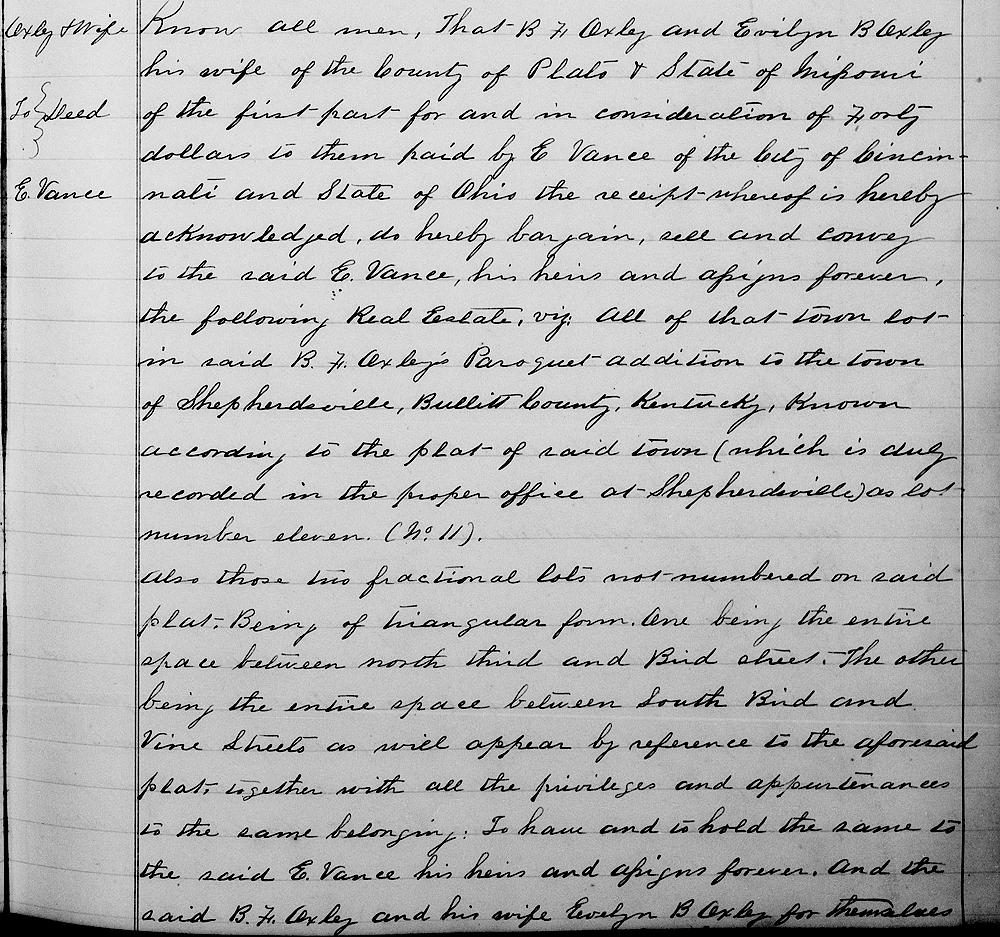 Oxley & Wife
To } Deed
E. Vance
Know all men, That B F Oxley and Evilyn B Oxley
his wife of the County of Plato & State of Missouri
of the first part for and in consideration of Forty
dollars to them paid by E Vance of the City of Cincin-
nati and State of Ohio the receipt whereof is hereby
acknowledged, do hereby bargain, sell and convey
to the said E. Vance, his heirs and assigns forever,
the following Real Estate, viz: All of that town lot
in said B. F. Oxley's Paroquet addition to the town
of Shepherdsville, Bullitt County, Kentucky, Known
according to the plat of said town (which is duly
recorded in the proper office at Shepherdsville) as lot
number eleven. (No. 11).
Also those two fractional lots not numbered on said
plat. Being of triangular form. One being the entire
space between north third and Bird street. The other
being the entire space between South Bird and
Vine Streets as will appear by reference to the aforesaid
plat, together with all the privileges and appurtenances
to the same belonging: To have and to hold the same to
the said E. Vance his heirs and assigns forever. And the
said B. F. Oxley and his wife Evelyn B Oxley for themselves